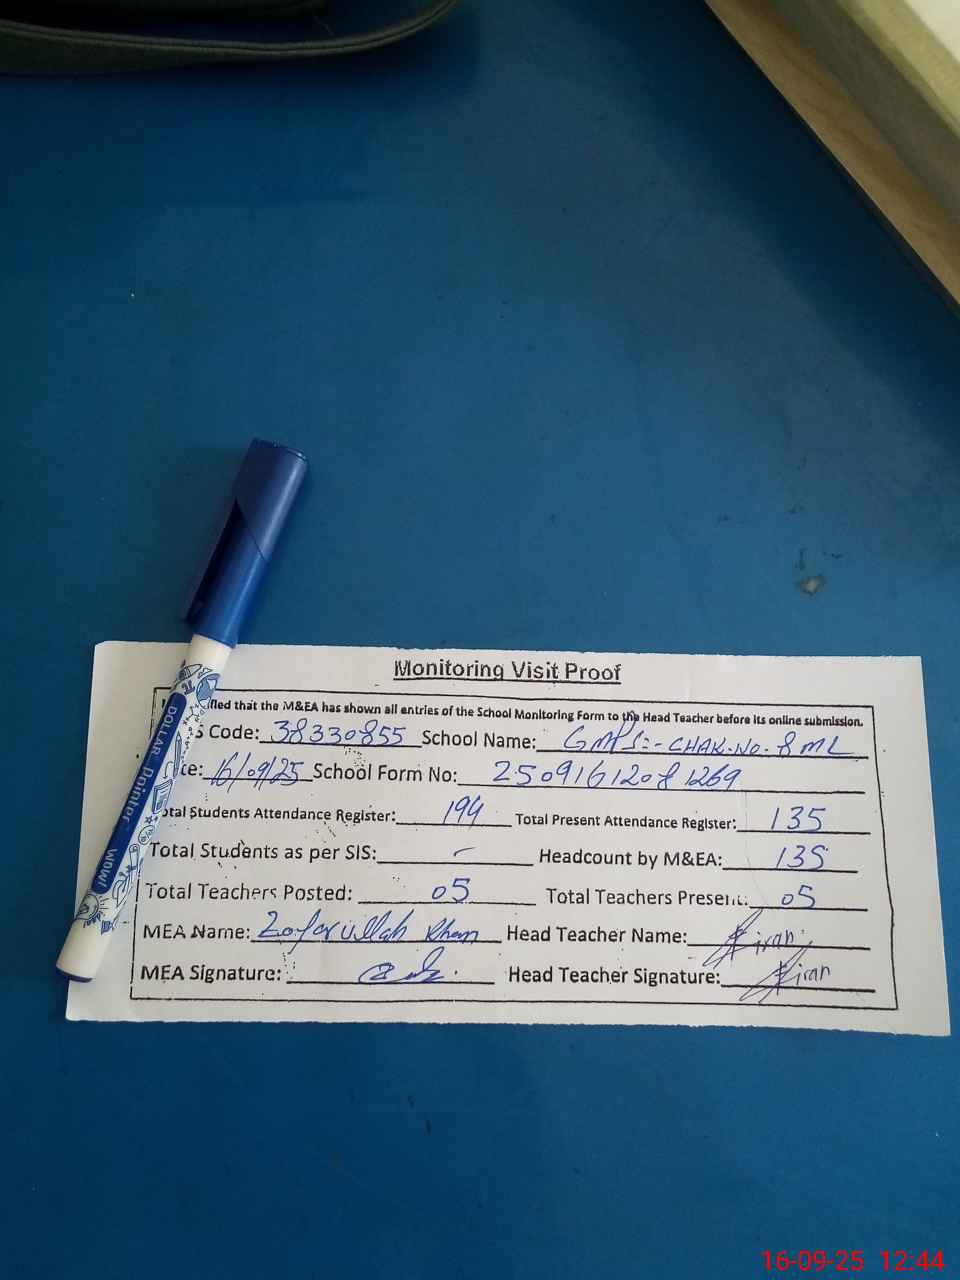 Monitoring Visit Proof
that the M&EA has shown all entries of the School Monitoring Form to the Head Teacher before its online submission.
S Code: 38330855 School Name: GMPS:- CHAK.NO. 8 ML
te: 16/09/25 School Form No: 2509161208 1269
otal Students Attendance Register: 194 Total Present Attendance Register: 135
Total Students as per SIS: - Headcount by M&EA: 135
Total Teachers Posted: 05 Total Teachers Present: 05
MEA Name: Zafarullah Khan Head Teacher Name: Kiran
MEA Signature: Head Teacher Signature: Kiran
DOLLAR Pointer WOW!
16-09-25 12:44